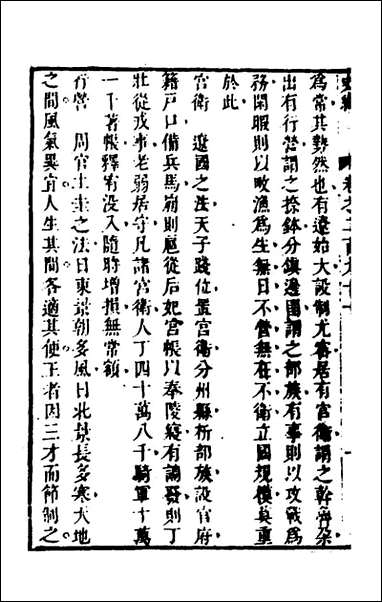 卷之二百九十
為常其勢然也有遼始大設制尤密居有宮衛謂之斡魯朶
出有行營謂之捺鉢分鎮邊圉謂之部族有事則以攻戰爲
務閑暇則以畋漁爲生無日不營無在不衛立國規模莫重
於此
宮衛　遼國之法天子踐位置宮衛分州縣析部族設官府
籍戶口備兵馬崩則扈從后妃宮帳以奉陵寢有調發則丁
壯從戎事老弱居守凡諸宮衛人丁四十萬八千騎軍十萬
一千著帳釋宥沒入隨時增損無常額
行營　周官土圭之法日東景朝多風日北景長多寒天地
之間風氣異宜人生其間各適其便王者因三才而節制之